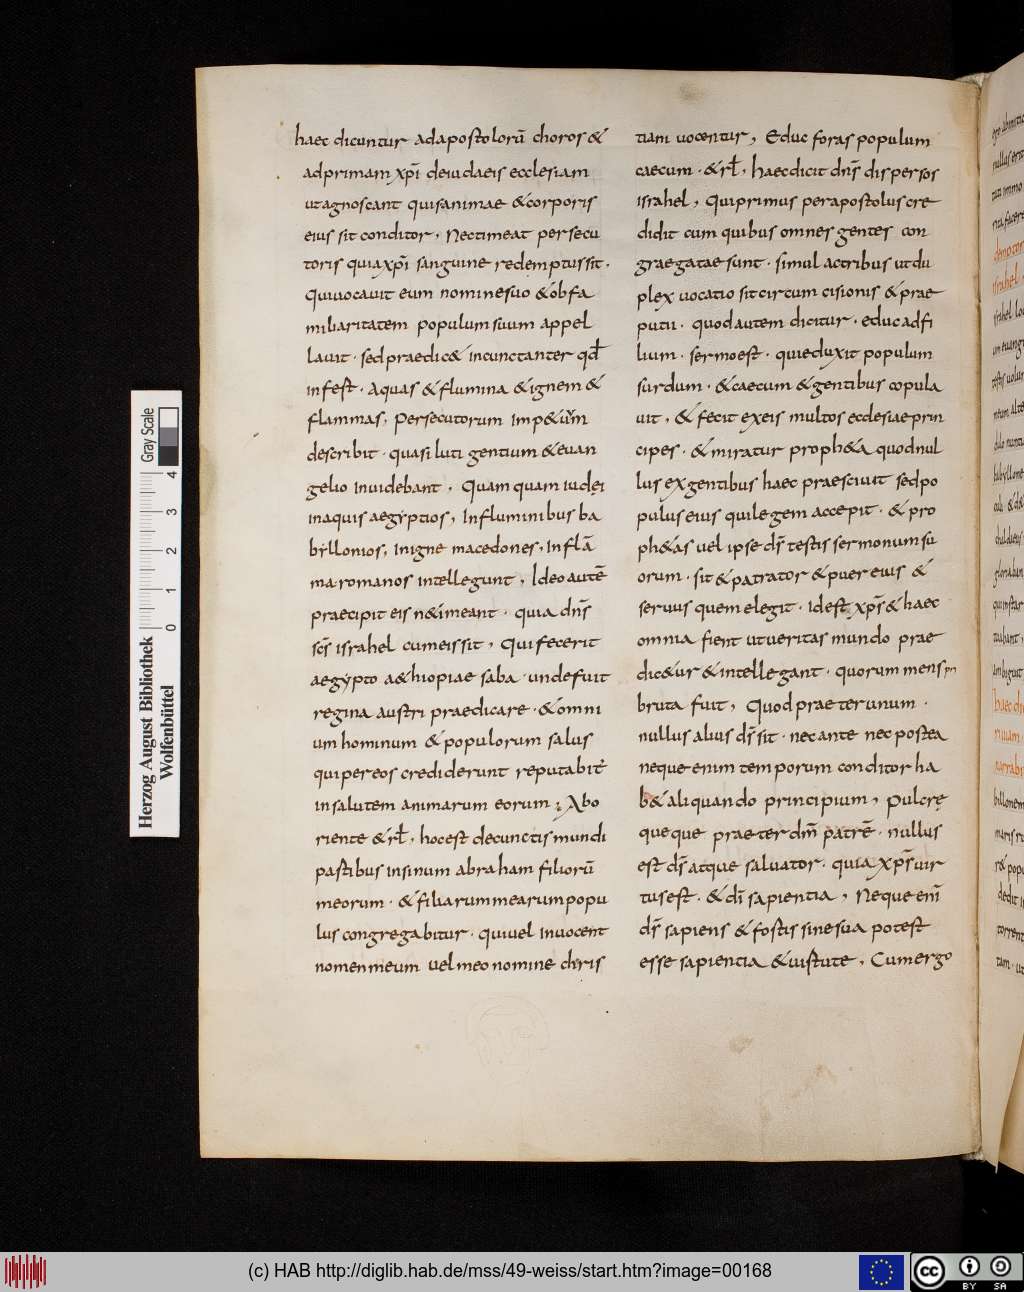 haec dicuntur adapostolorū choros &
adprimam xp̄i deiudaeis ecclesiam
utagnoscant quisanimae &corporis
eius sit conditor, Nectimeat persecu
toris quiaxp̄i sanguine redemptussit.
Quiuocauit eum nominesuo &obfa
miliaritatem populumsuum appel
lauit. sedpraedic& incunctanter qđ
infest. Aquas & flumina &ignem &
flammas, Persecutorum Imp&ūm
describit. quasi luti gentium &euan
gelio Inuidebant, Quamquam iudei
inaquis aegyptios, Influminibus ba
byllonios, Inigne macedones, Inflā
ma romanos intellegunt, Ideo autē
praecipit eis n&imeant. quia dn̄s
sc̄s israhel cumeissit, Quifecerit
aegypto a&hiopiae saba. undefuit
regina austri praedicare. &omni
um hominum & populorum salus
quipereos crediderunt reputabit
insalutem animarum eorum; Abo
riente &rł, hocest decunctis mundi
pastibus insinum abraham filiorū
meorum. & filiarummearumpopu
lus congregabitur. quiuel Inuocent
nomenmeum uel meo nomine chris
tiani uocentur, Educ foras populum
caecum. &rł, haecdicit dn̄s dispersos
israhel, Quiprimus perapostolus cre
didit cum quibus omnes gentes con
graegatae sunt. simul actribus utdu
plex uocatio sit circum cisionis &prae
putii. quodautem dicitur. educ adfi
lium. sermoest. quieduxit populum
surdum. &caecum &gentibus copula
uit, & fecit exeis multos ecclesiaeprin
cipes. & miratur proph&a quodnul
lus exgentibus haec praesciuit sedpo
pulus eius quilegem accepit. & pro
ph&as uel ipse ds̄ testis sermonum su
orum. sit &patrator &puer eius &
seruus quem elegit. Idest xp̄s & haec
omnia fient utueritas mundo prae
dic&ur &intellegant. quorum mens pri
bruta fuit, Quod praeterunum.
nullus alius ds̄ sit. necante nec postea
neque enim temporum conditor ha
b& aliquando principium, Pulcrę
queque praeter dm̄ patrē. nullus
est ds̄ atque saluator. quia xp̄s uir
tusest. &dī sapientia, Neque enī
ds̄ sapiens & fostis sinesua potest
esse sapientia &uistute, Cumergo
Herzog August Bibliothek
Wolfenbüttel
Gray Scale
0 1 2 3 4
(c) HAB http://diglib.hab.de/mss/49-weiss/start.htm?image=00168
cc BY SA